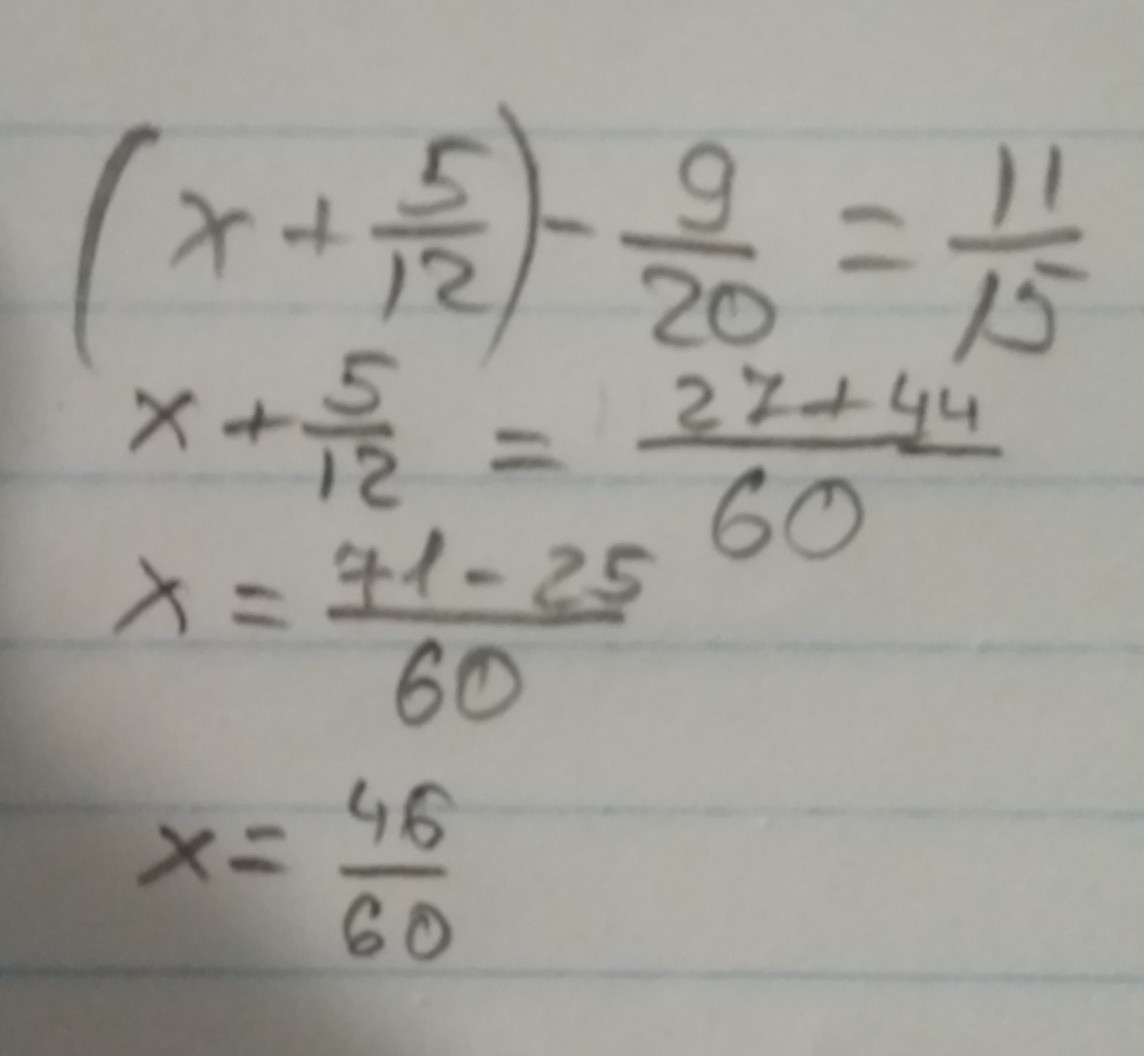 (x + 5/12) - 9/20 = 11/15
x + 5/12 = 27+44/60
x = 71-25/60
x = 46/60